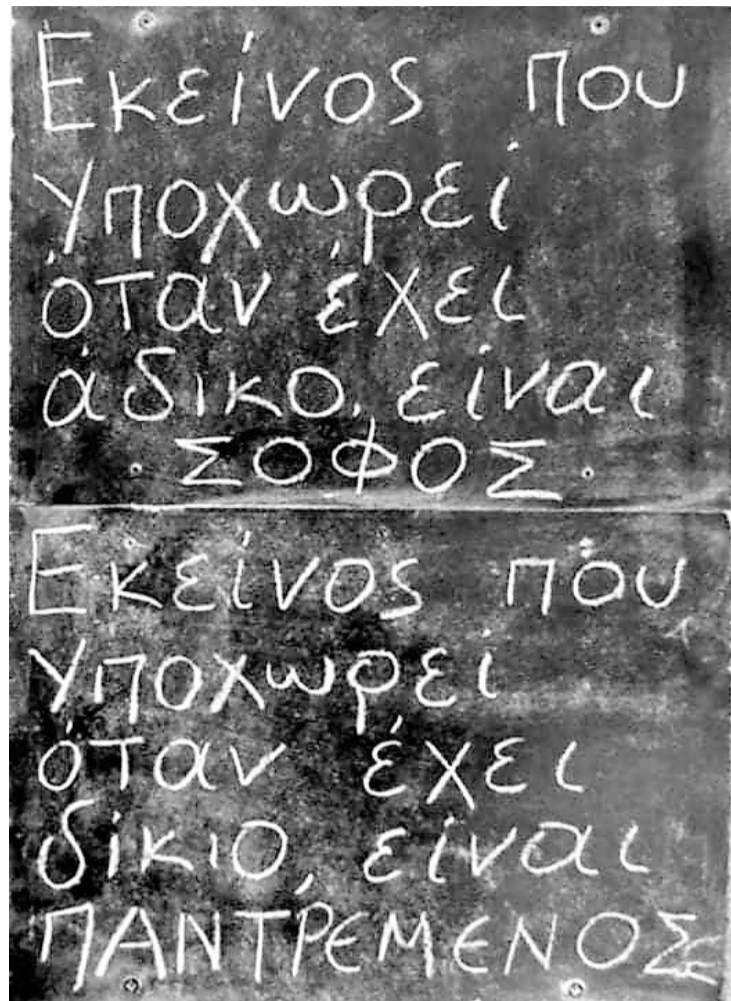 Εκείνος που
υποχωρεί
όταν έχει
άδικο, είναι
ΣΟΦΟΣ
Εκείνος που
υποχωρεί
όταν έχει
δίκιο, είναι
ΠΑΝΤΡΕΜΕΝΟΣ